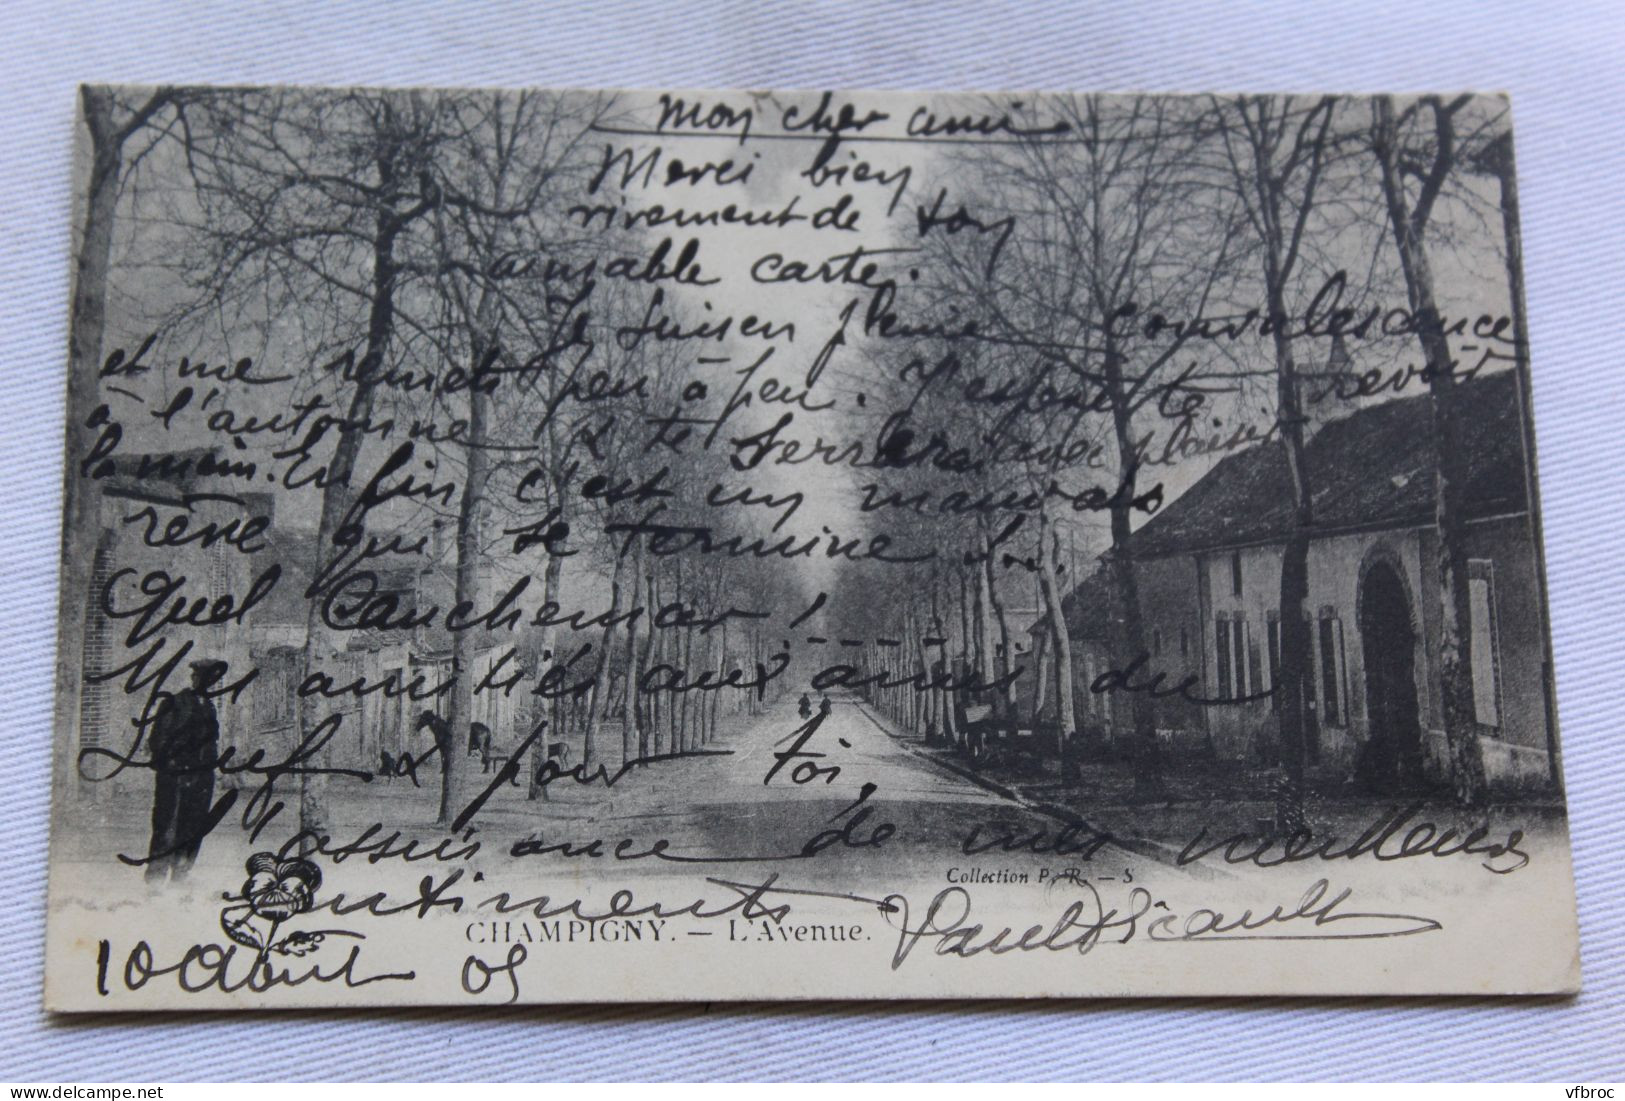 Mon cher ami
Merci bien
vivement de ton
aimable carte.
Je suis en pleine convalescence
et me remets peu à peu. J'espère te revoir
à l'automne & te serrerai avec plaisir
la main. Enfin c'est un mauvais
rêve qui se termine
Quel Cauchemar ! - - - - -
Mes amitiés aux amis du
& pour toi,
l'assurance de mes meilleurs
sentiments
Collection P. R. — S
CHAMPIGNY. — L'Avenue.
10 Août 05
vfbroc